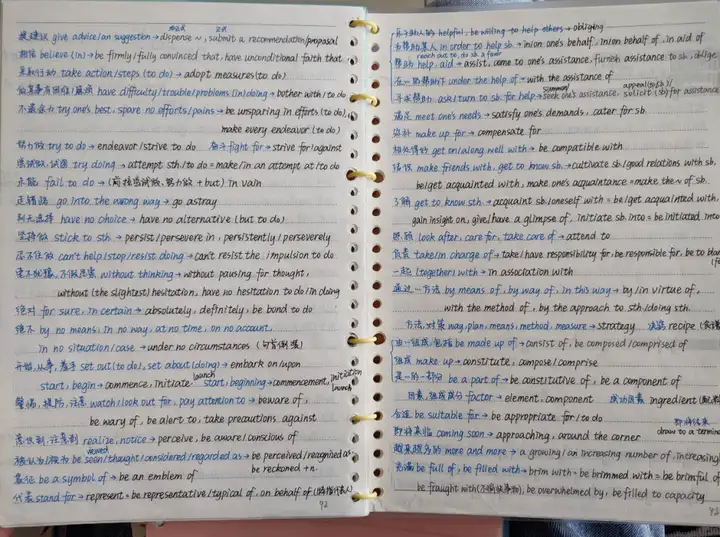 非正式 正式
提建议 give advice/an suggestion → dispense ~, submit a recommendation/proposal
相信 believe (in) → be firmly/fully convinced that, have unconditional faith that
采取行动 take action/steps (to do) → adopt measures (to do)
做某事有困难/麻烦 have difficulty/trouble/problems (in) doing → bother with/to do
不遗余力 try one's best, spare no efforts/pains → be unsparing in efforts (to do),
make every endeavor (to do)
努力做 try to do → endeavor/strive to do 奋斗 fight for → strive for/against
尝试做,试图 try doing → attempt sth./to do = make/in an attempt at/to do
未能 fail to do → (前接尝试做,努力做 + but) in vain
走错路 go into the wrong way → go astray
别无选择 have no choice → have no alternative (but to do)
坚持做 stick to sth. → persist/persevere in, persistently/perseverely
忍不住做 can't help/stop/resist doing → can't resist the impulsion to do
毫不犹豫,不假思索 without thinking → without pausing for thought,
without (the slightest) hesitation, have no hesitation to do/in doing
绝对 for sure, in certain → absolutely, definitely, be bond to do
绝不 by no means, in no way, at no time, on no account,
in no situation/case → under no circumstances (句首倒装)
开始,从事,着手 set out (to do), set about (doing) → embark on/upon
launch initiation
start, begin → commence, initiate start, beginning → commencement, launch
警惕,提防,注意 watch/look out for, pay attention to → beware of,
be wary of, be alert to, take precautions against
意识到,注意到 realize, notice → perceive, be aware/conscious of
viewed
被认为/视为 be seen/thought/considered/regarded as → be perceived/recognised as
be reckoned + n.
象征 be a symbol of → be an emblem of
代表 stand for → represent = be representative/typical of, on behalf of (临指代表人)
92
乐于助人的 helpful, be willing to help others → obliging
为帮助某人 in order to help sb. → in/on one's behalf, in/on behalf of, in aid of
reach out to, do sb. a favor
帮助 help, aid → assist, come to one's assistance, furnish assistance to sb., oblige
在…的帮助下 under the help of → with the assistance of
summon appeal (to sb.)/
寻求帮助 ask/turn to sb. for help → seek one's assistance, solicit (sb.) for assistance
满足 meet one's needs → satisfy one's demands, cater for sb.
弥补 make up for → compensate for
相处得好 get on/along well with → be compatible with
结识 make friends with, get to know sb. → cultivate sb./good relations with sb.
be/get acquainted with, make one's acquaintance = make the ~ of sb.
了解 get to know sth. → acquaint sb./oneself with = be/get acquainted with,
gain insight on, give/have a glimpse of, initiate sb. into = be initiated into
照顾 look after, care for, take care of → attend to
负责 take/in charge of → take/have responsibility for, be responsible for, be to blame
一起 (together) with → in association with
通过…方法 by means of, by way of, in this way → by/in virtue of,
with the method of, by the approach to sth./doing sth.
方法,对策 way, plan, means, method, measure → strategy 诀窍 recipe
由…组成/包括 be made up of → consist of, be composed/comprised of
组成 make up → constitute, compose/comprise
是…的一部分 be a part of → be constitutive of, be a component of
因素,组成部分 factor → element, component 成功因素 ingredient
合适 be suitable for → be appropriate for/to do
即将结束
即将来临 coming soon → approaching, around the corner draw to a
越来越多的 more and more → a growing/an increasing number of, increasing
充满 be full of, be filled with → brim with = be brimmed with = be brimful of
be fraught with, be overwhelmed by, be filled to capacity
93